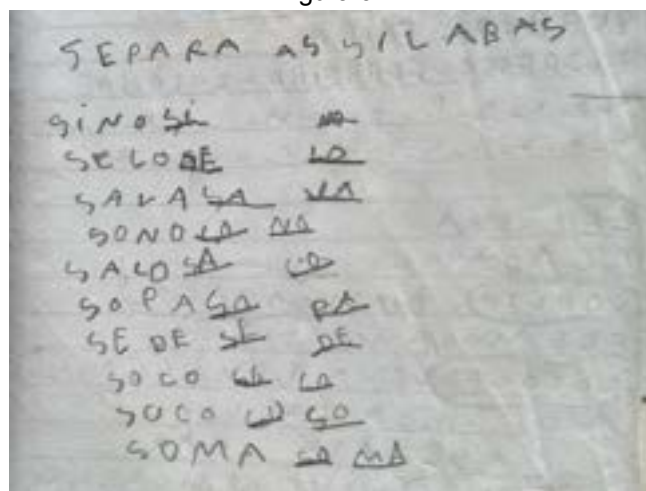 SEPARA AS SILABAS
SINO SI NO
SELO SE LO
SAVA SA VA
SONO SO NO
SACO SA CO
SOPA SO PA
SEDE SE DE
SOCO SO CO
SOCO CO SO
SOMA SO MA